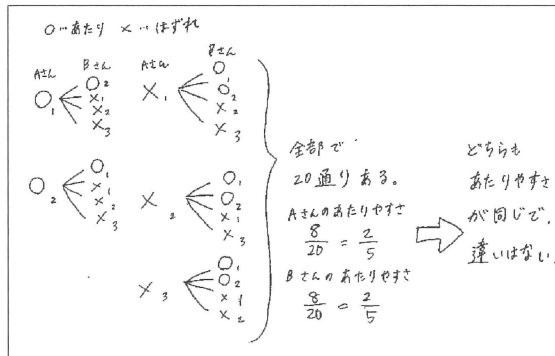 ○…あたり ×…はずれ
Aさん Bさん Aさん Bさん
○1 ○2 ×1 ×2 ×3
×1 ○1 ○2 ×2 ×3
○2 ○1 ×1 ×2 ×3
×2 ○1 ○2 ×1 ×3
×3 ○1 ○2 ×1 ×2
全部で
20通りある。
Aさんのあたりやすさ
8/20 = 2/5
Bさんのあたりやすさ
8/20 = 2/5
どちらも
あたりやすさ
が同じで、
違いはない。